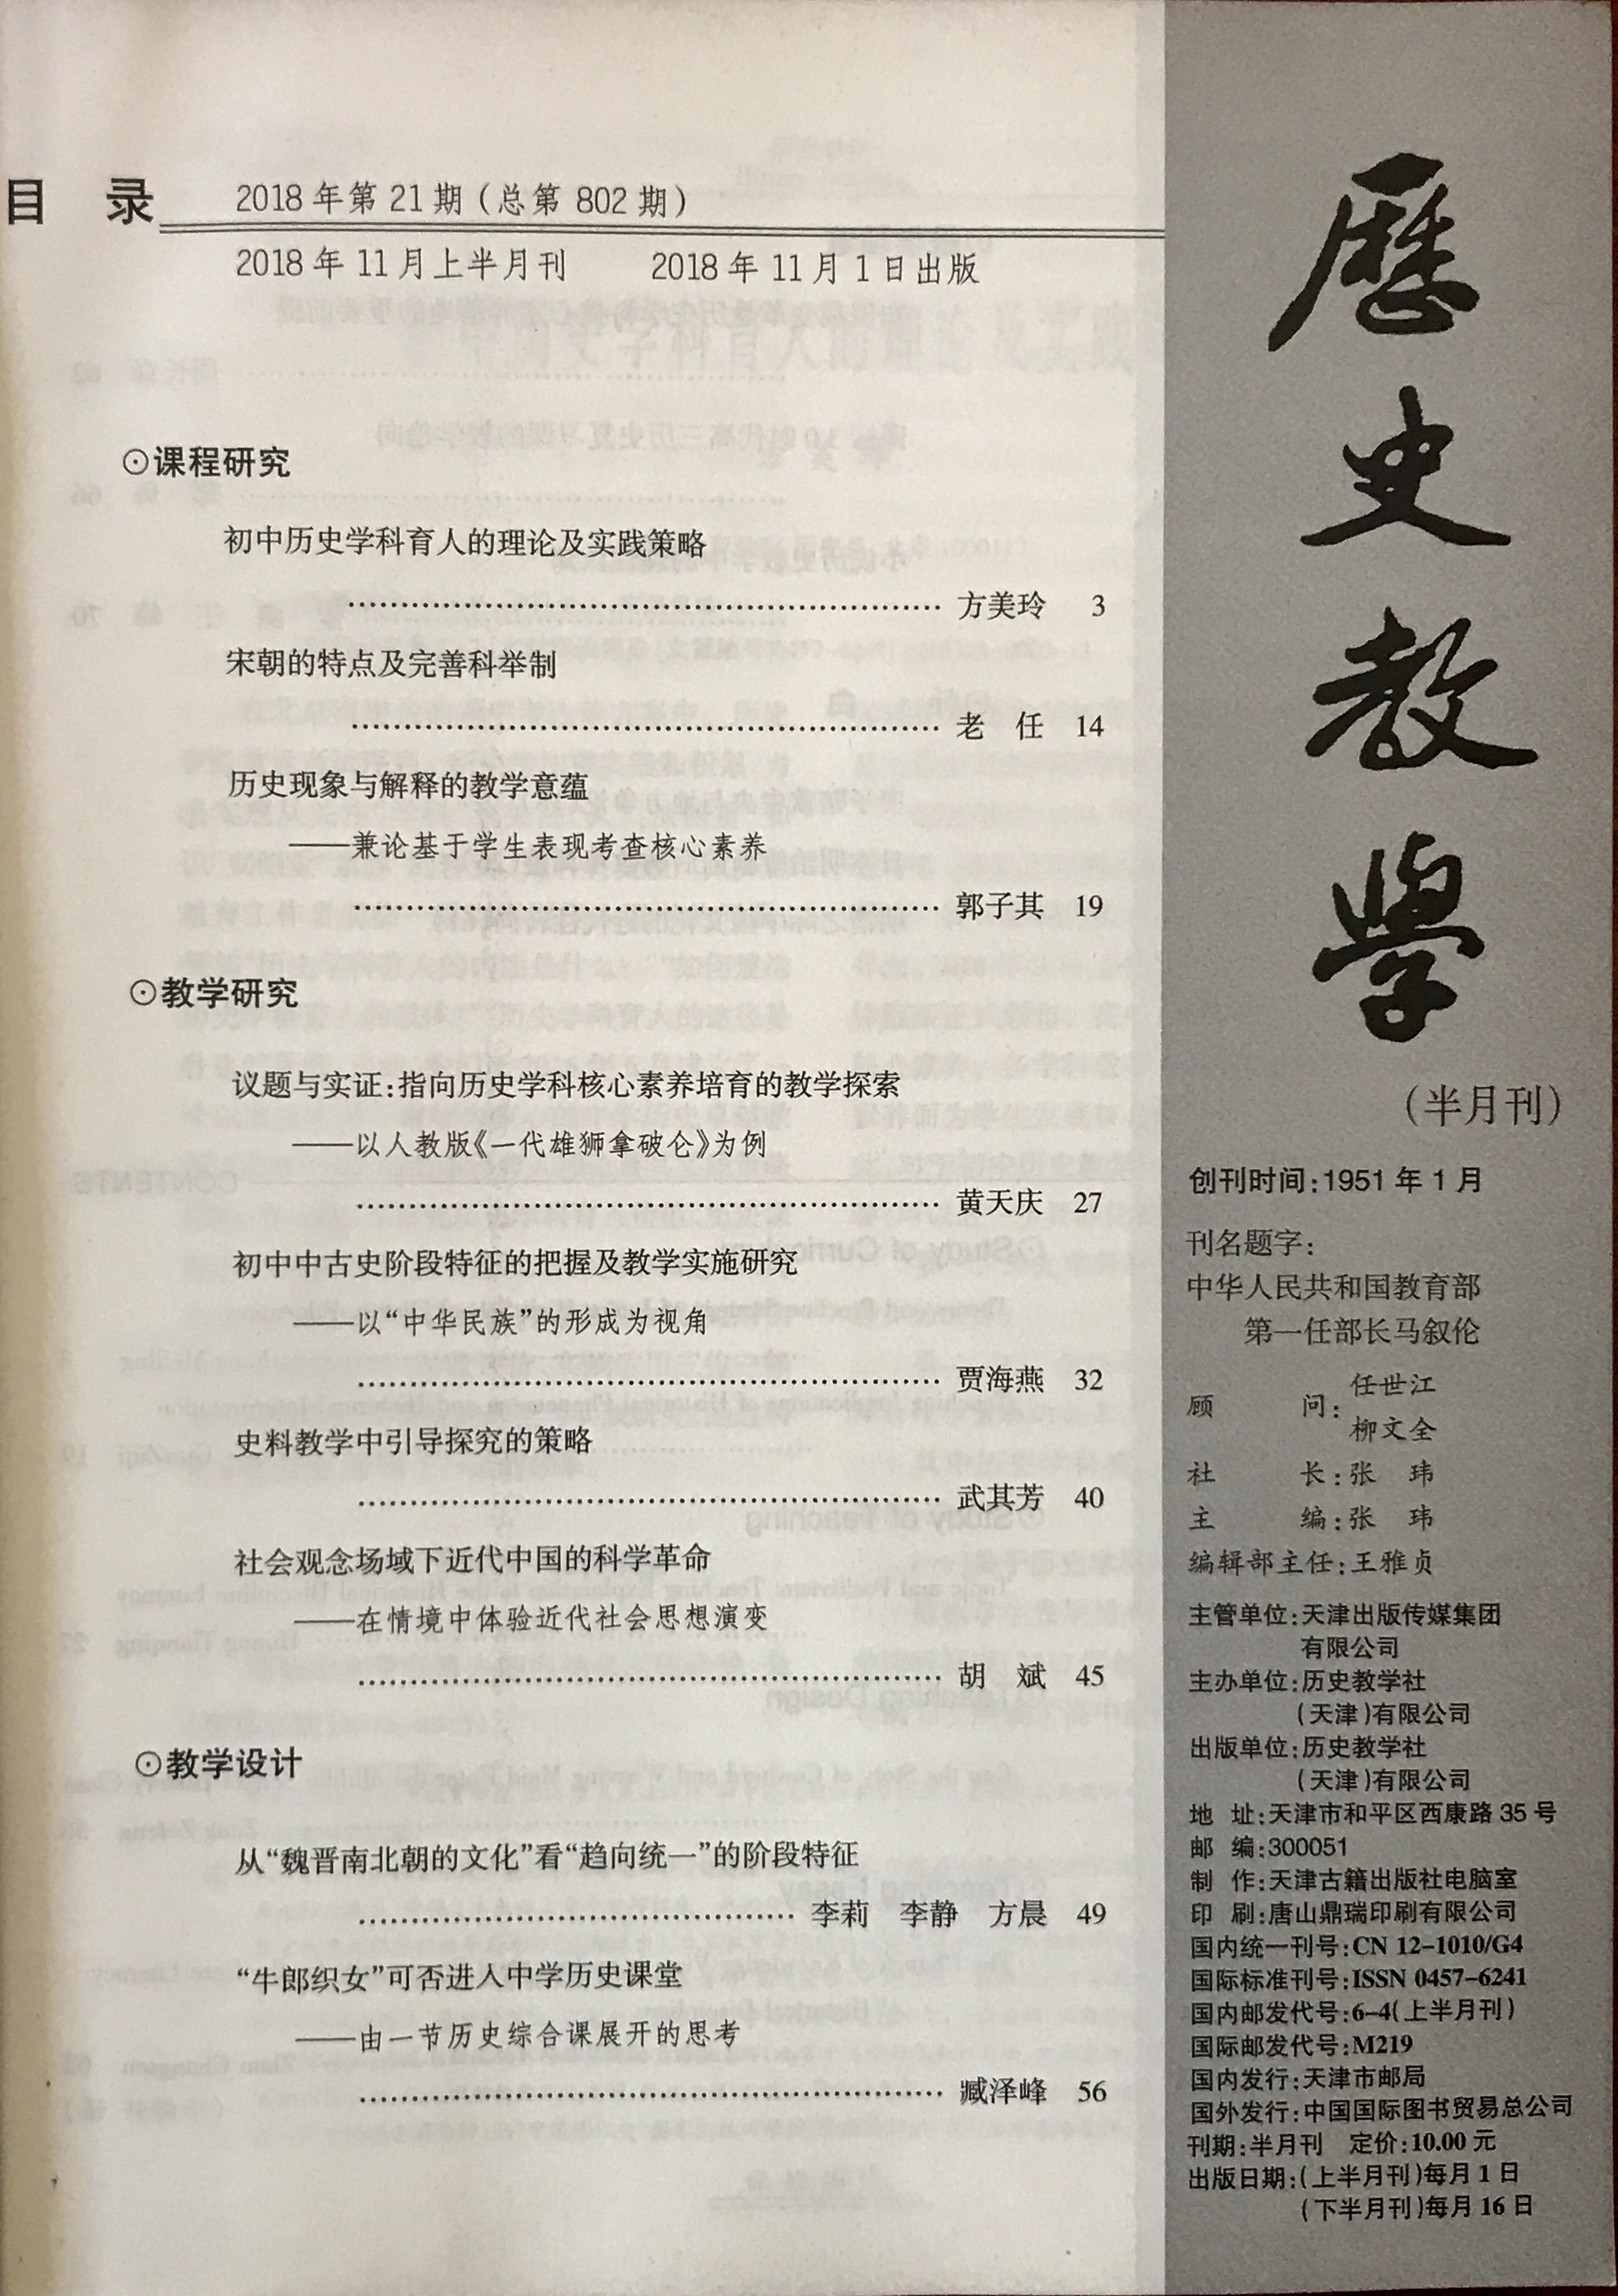 目 录
2018 年第 21 期（总第 802 期）
2018 年 11 月上半月刊 2018 年 11 月 1 日出版
⊙课程研究
初中历史学科育人的理论及实践策略
…………………………………… 方美玲 3
宋朝的特点及完善科举制
…………………………………… 老 任 14
历史现象与解释的教学意蕴
——兼论基于学生表现考查核心素养
…………………………………… 郭子其 19
⊙教学研究
议题与实证：指向历史学科核心素养培育的教学探索
——以人教版《一代雄狮拿破仑》为例
…………………………………… 黄天庆 27
初中中古史阶段特征的把握及教学实施研究
——以“中华民族”的形成为视角
…………………………………… 贾海燕 32
史料教学中引导探究的策略
…………………………………… 武其芳 40
社会观念场域下近代中国的科学革命
——在情境中体验近代社会思想演变
…………………………………… 胡 斌 45
⊙教学设计
从“魏晋南北朝的文化”看“趋向统一”的阶段特征
………………………… 李莉 李静 方晨 49
“牛郎织女”可否进入中学历史课堂
——由一节历史综合课展开的思考
…………………………………… 臧泽峰 56
歷史教學
（半月刊）
创刊时间：1951 年 1 月
刊名题字：
中华人民共和国教育部
第一任部长马叙伦
顾 问：任世江
柳文全
社 长：张 玮
主 编：张 玮
编辑部主任：王雅贞
主管单位：天津出版传媒集团
有限公司
主办单位：历史教学社
（天津）有限公司
出版单位：历史教学社
（天津）有限公司
地 址：天津市和平区西康路 35 号
邮 编：300051
制 作：天津古籍出版社电脑室
印 刷：唐山鼎瑞印刷有限公司
国内统一刊号：CN 12-1010/G4
国际标准刊号：ISSN 0457-6241
国内邮发代号：6-4（上半月刊）
国际邮发代号：M219
国内发行：天津市邮局
国外发行：中国国际图书贸易总公司
刊期：半月刊 定价：10.00 元
出版日期：（上半月刊）每月 1 日
（下半月刊）每月 16 日